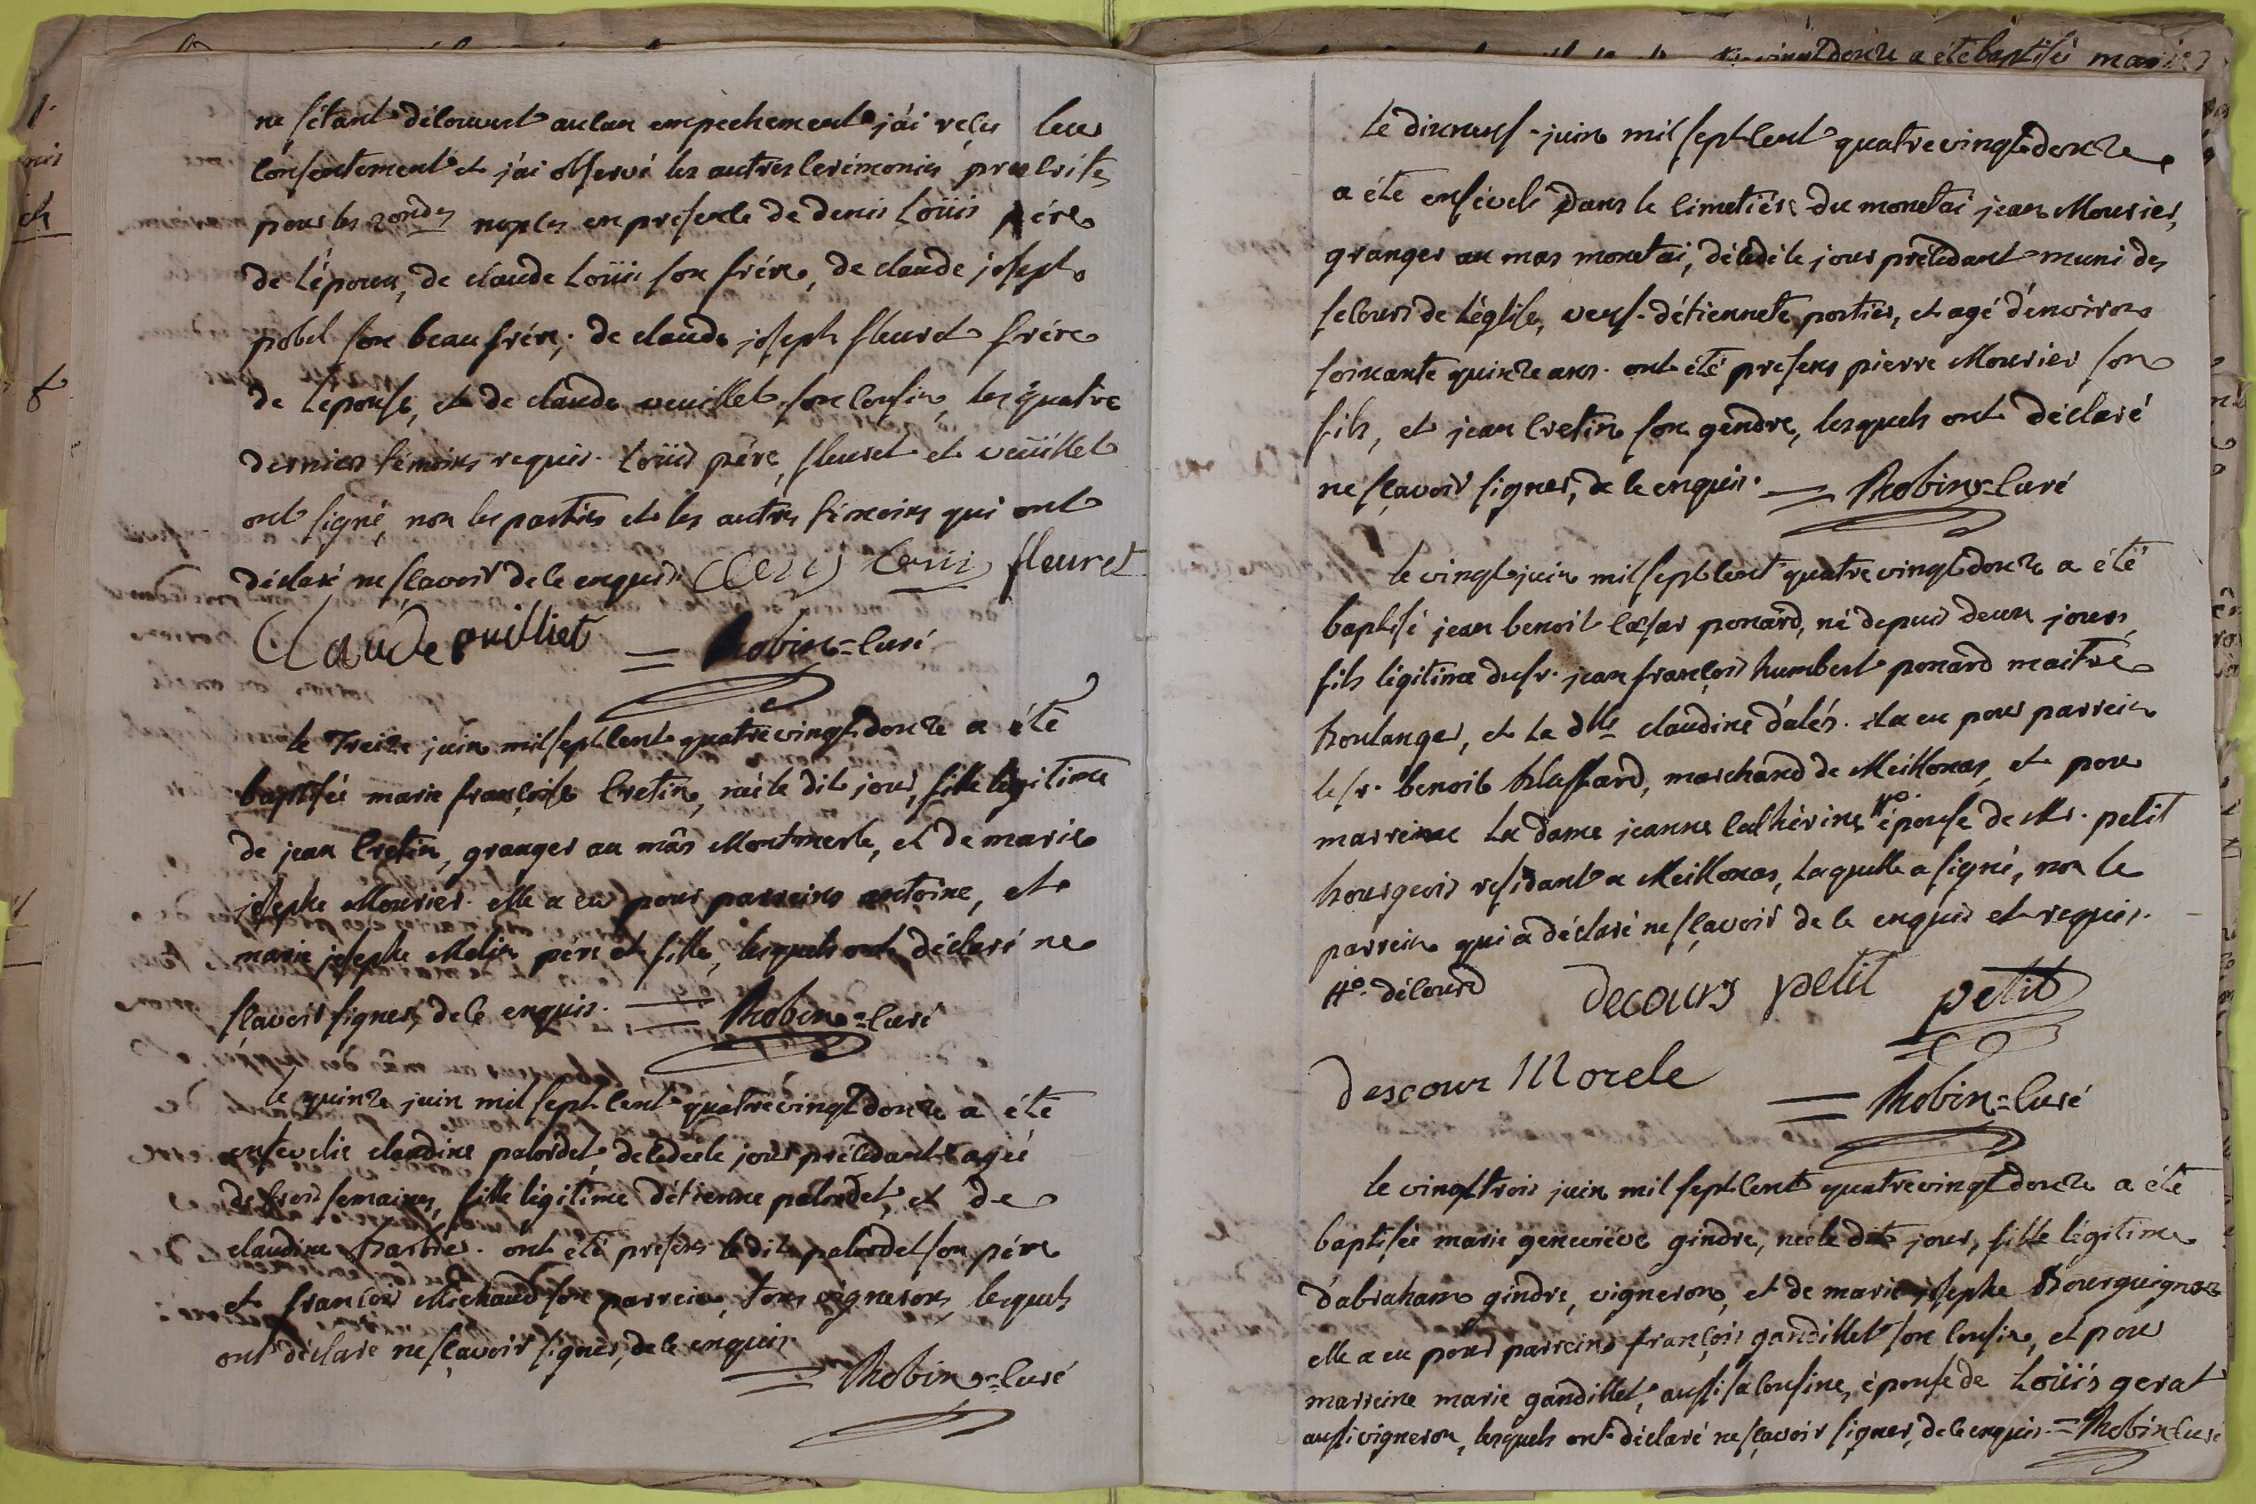 ne s'étant découvert aucun empechement j'ai reçu leur
consentement et j'ai observé les autres cerémonies prescrites
pour les 2ondes nopces en presence de denis Loüis père
de l'époux, de claude Loüis son frére, de claude joseph
pobel son beau frére; de claude joseph fleuret frére
de l'épouse, et de claude veuillet son cousin, les quatre
derniers témoins requis. Loüis pére, fleuret et veüillet
ont signé, non les parties et les autres témoins qui ont
déclaré ne sçavoir de ce enquis. Louis fleuret
Claude vuilliet = Robin=curé
le Treize juin mil sept cent quatre vingt douze a été
baptisée marie françoise Cretin, née le dit jour, fille légitime
de jean Cretin, granger au mâs Montmerle, et de marie
josephe Mourier. elle a eu pour parreins antoine, et
marie josephe Melin pere et fille, lesquels ont déclaré ne
sçavoir signer, de ce enquis. = Robin=curé
le quinze juin mil sept cent quatre vingt douze a été
ensevelie claudine pacordet, decedeé le jour précédant agée
de trois semaines, fille légitime d'étienne pacordet, et de
claudine Barbier. ont été presens le dit pacordet son pére
et françois Michaud son parrein, tous vignerons, lesquels
ont déclaré ne sçavoir signer, de ce enquis
= Robin=curé
Le dixneuf juin mil sept cent quatre vingt douze
a été enséveli dans le cimetiére du monetai jean Mourier,
granger au mas monetai, décédé le jour précédant muni des
secours de l'église, veuf d'étiennete portier, et agé d'environ
soixante quinze ans. ont été presens pierre Mourier son
fils, et jean Cretin son gendre, lesquels ont déclaré
ne sçavoir signer, de ce enquis. = Robin=curé
le vingt juin mil sept cent quatre vingt douze a été
baptisé jean benoit cæsar ponard, né depuis deux jours,
fils légitime du sr. jean françois humbert ponard maitre
boulanger, et la dlle claudine d'alés. il a eu pour parrein
le sr. benoit blassard, marchand de Meillonas, et pour
marreine la dame jeanne cathérine #o. épouse de Mr. petit
bourgeois residant a Meillonas, laquelle a signé, non le
parrein qui a déclaré ne sçavoir de ce enquis et requis.
#o. décourd decours petit petit
descour Morele
= Robin=curé
le vingt trois juin mil sept cent quatre vingt douze a été
baptisée marie geneviéve gindre, née le dit jour, fille légitime
d'abraham gindre, vigneron, et de marie josephe Bourguignon
elle a eu pour parrein françois gandillet son cousin, et pour
marreine marie gandillet, aussi sa cousine, épouse de Loüis gerat
aussi vigneron, lesquels ont déclaré ne sçavoir signer, de ce enquis. = Robin curé